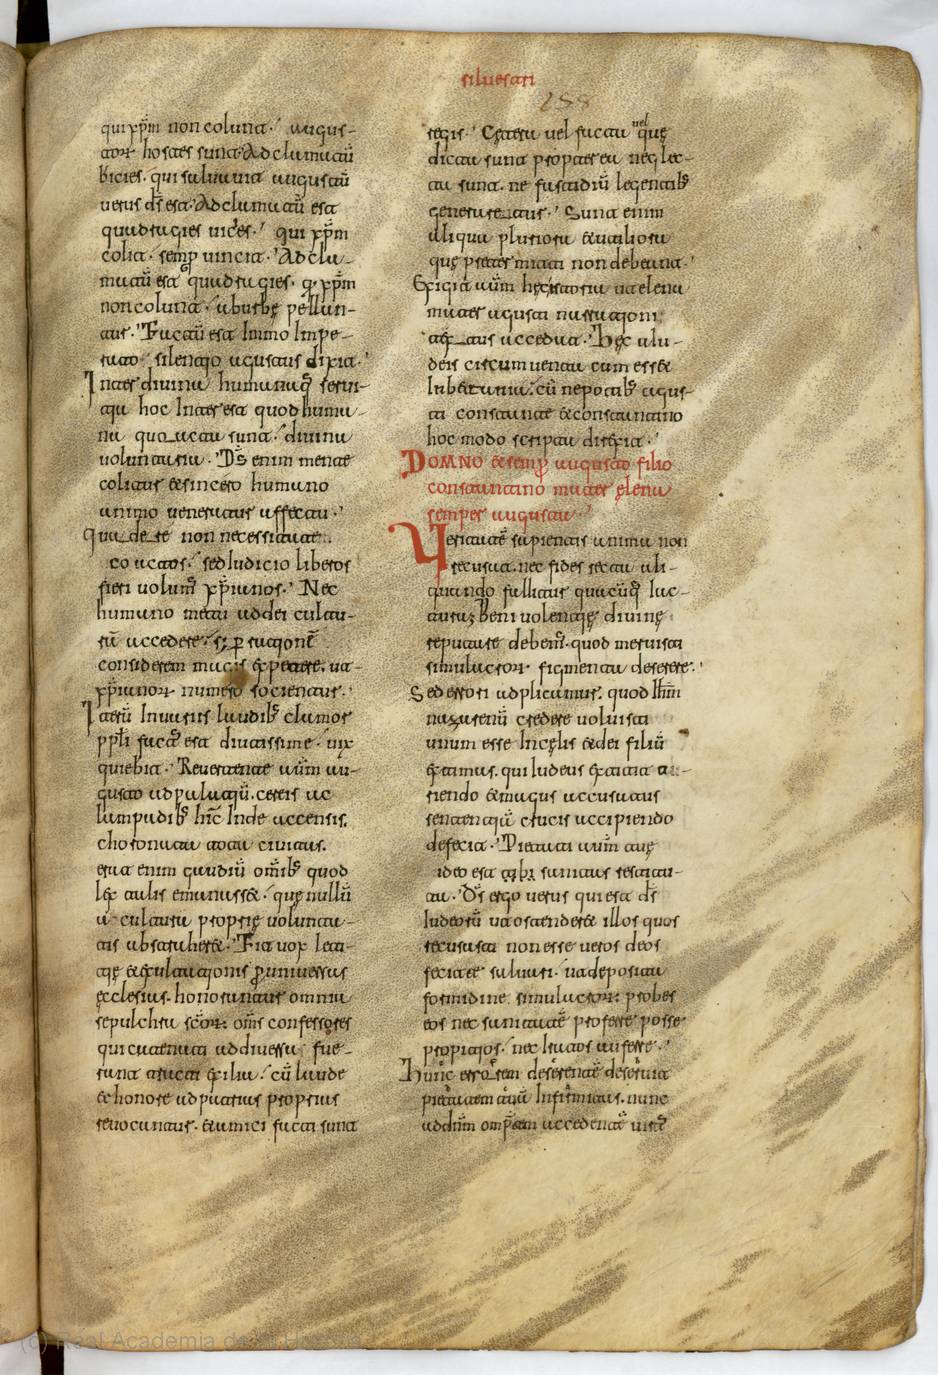 siluestri
258
qui xp̅m non colunt. augus-
tor hostes sunt. Adclamatu̅
bicies. qui saluauit augustu̅
uerus d̅s est. Adclamatu̅ est
quadragies uices. qui xp̅m
colit. semp uincit. Adcla-
matu̅ est quadragies. q xp̅m
non colunt. ab urbe pellan-
tur. Factu̅ est Immo Impe-
rato silentio agustus dixit.
Inter diuina humanaq serui-
tia hoc Interest quod huma-
na coacta sunt. diuina
uoluntaria. D̅s enim mente
colitur & sincero humano
animo ueneratur affectu.
que de se non necessitate
coactos. sed Iudicio liberos
fieri uolum xp̅ianos. Nec
humano metu ad dei cultu-
ra̅ accedere. s; p ratione̅
considerem magis expetere. ut
xp̅ianor numero socientur.
Iteru̅ In uariis laudib clamor
ppl̅i fact est diutissime. uix
quieuit. Reuertente au̅m au-
gusto ad palatiu̅. cereis ac
lampadib hinc Inde accensis.
choronata tota ciuitas.
erat enim gaudiu̅ om̅ib quod
lex talis emanasset. que nullu̅
a cultura proprie uolunta-
tis abstraheret. Fit uox leti-
tie & exultationis p uniuersas
ecclesias. honorantur omnia
sepulchra s̅cor om̅s confessores
qui erant addiuersa fue-
runt truti exilia. cu̅ laude
& honore ad patrias proprias
reuocantur. & amici facti sunt
regis. Cetera uel facta uel que
dicta sunt propterea neglec-
ta sunt. ne fastidiu̅ legentib
generaretur. Sunt enim
aliqua pluriora & utiliora
que pretermitti non debeunt.
Exigit au̅m hec istoria ut elena
mater agusti narrationi
atextatur accedat. Hec a Iu-
deis circumuenta cum ess&
In bitania. cu̅ nepotib agus-
ti constante & constantino
hoc modo scripta direxit.
DOMNO & semp augusto filio
constantino mater elena
semper augusta.
Veritate̅ sapientis animu non
recusat. nec fides recta ali-
quando fallitur quacu̅q luc-
tatur Beniuolentie diuine
reputare debem. quod meruisti
simulacror figmenta deserere.
Sed errori adplicamus. quod Ih̅m
nazarenu̅ credere uoluisti
unum esse In celis & dei filiu̅
extimas. qui Iudeus extitit ar-
riendo & magus accusatus
sententiu̅ crucis accipiendo
defecit. Pietati au̅m tue
ideo est tibi sanitas restitu-
ta. D̅s ergo uerus qui est d̅s
Iudeoru̅ ut ostender& illos quos
recusasti non esse ueros deos
fecit te saluari. ut deposita
formidine simulacror probes
eos nec sanitate̅ proferre posse
propitios. nec Iratos auferre.
Hunc errorem deserente deseruit
pietatem tua̅ Infirmitas. nunc
ad d̅m omp̅tem accedente uita